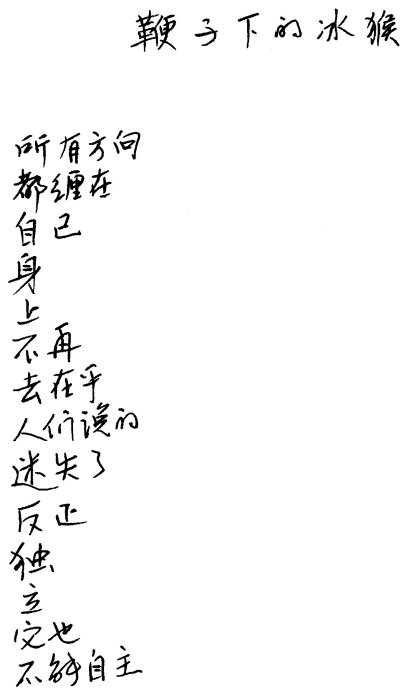 鞭子下的冰猴
所有方向
都缠在
自己
身
上
不再
去在乎
人们说的
迷失了
反正
独
立
定也
不能自主